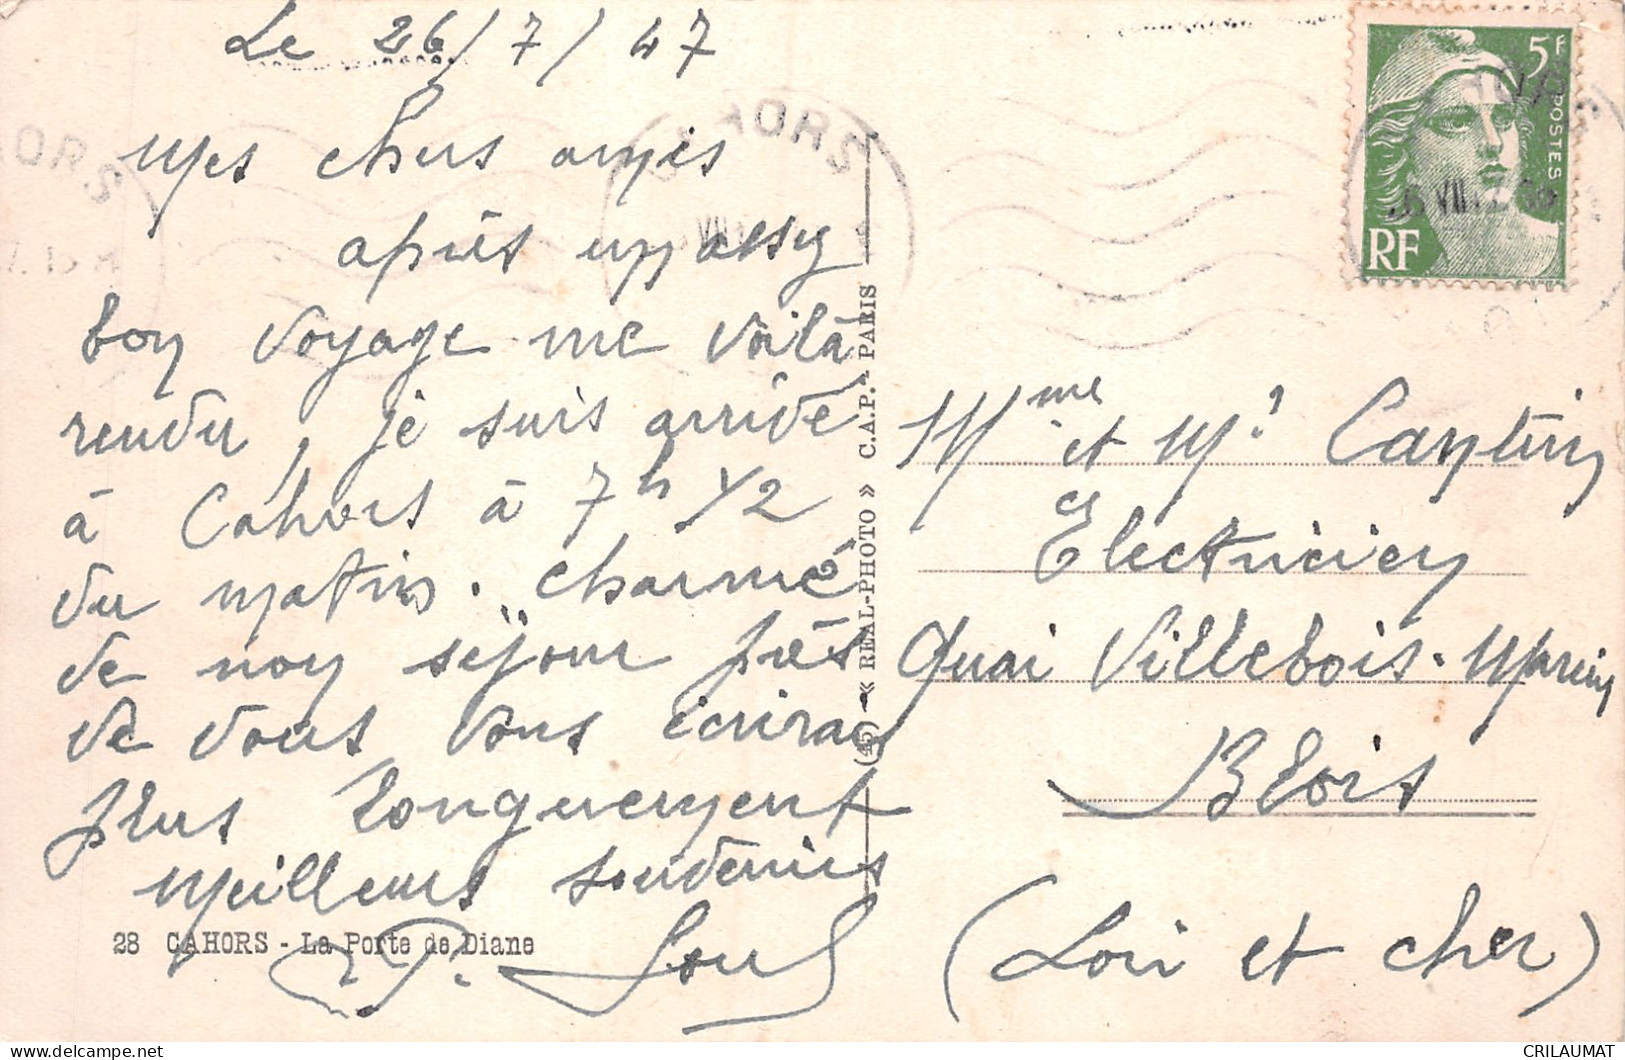 Le 26/7/47
Mes chers amis
après un assez
bon voyage me voilà
rendu, je suis arrivé
à Cahors à 7h 1/2
du matin. Charmé
de mon séjour près
de vous vous écrirai
plus longuement
Meilleurs souvenirs
28 CAHORS - La Porte de Diane
(45) - « REAL-PHOTO » C.A.P. - PARIS
CAHORS
5F
POSTES
RF
Mme et Mr Cantin
Electricien
Quai Villebois-Mareuil
Blois
(Loir et Cher)
CRILAUMAT